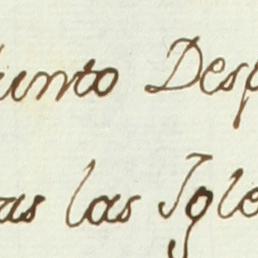 unto Desp
as las Igle